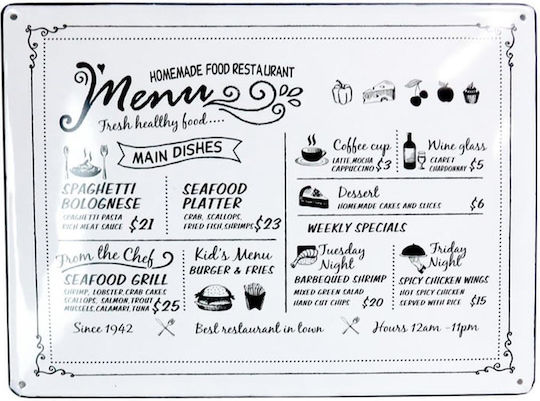 HOMEMADE FOOD RESTAURANT
Menu
Fresh healthy food....
MAIN DISHES
SPAGHETTI
BOLOGNESE
SPAGHETTI PASTA
RICH MEAT SAUCE $21
SEAFOOD
PLATTER
CRAB, SCALLOPS,
FRIED FISH, SHRIMPS $23
From the Chef
SEAFOOD GRILL
SHRIMP, LOBSTER, CRAB CAKES
SCALLOPS, SALMON, TROUT
MUSSELS, CALAMARI, TUNA $25
Kid's Menu
BURGER & FRIES
Coffee cup
LATTE, MOCHA
CAPPUCCINO $3
Wine glass
CLARET
CHARDONNAY $5
Dessert
HOMEMADE CAKES AND SLICES $6
WEEKLY SPECIALS
Tuesday
Night
BARBEQUED SHRIMP
MIXED GREEN SALAD
HAND CUT CHIPS $20
Friday
Night
SPICY CHICKEN WINGS
HOT SPICY CHICKEN
SERVED WITH RICE $15
Since 1942 Best restaurant in town Hours 12am -11pm